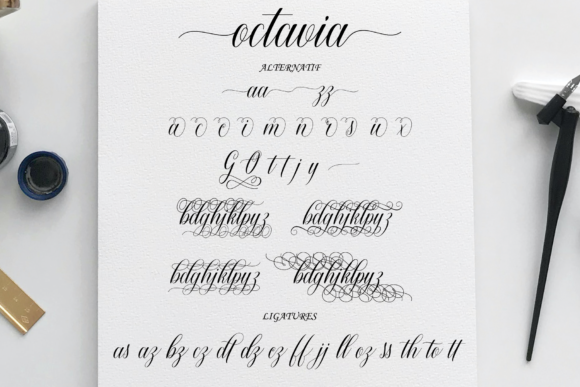 octavia
ALTERNATIF
aa zz
a o e i m n r s u x
G O t t j y
bdghjklpyz bdghjklpyz
bdghjklpyz bdghjklpyz
LIGATURES
as az bz cz dt dz ez ff jj ll oz ss th to tt